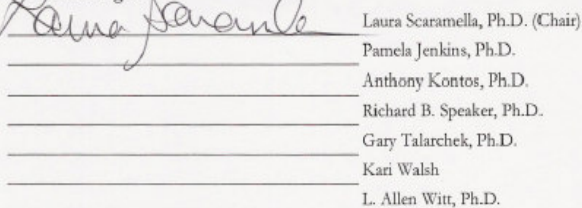 Laura Scaramella Laura Scaramella, Ph.D. (Chair)
Pamela Jenkins, Ph.D.
Anthony Kontos, Ph.D.
Richard B. Speaker, Ph.D.
Gary Talarchek, Ph.D.
Kari Walsh
L. Allen Witt, Ph.D.